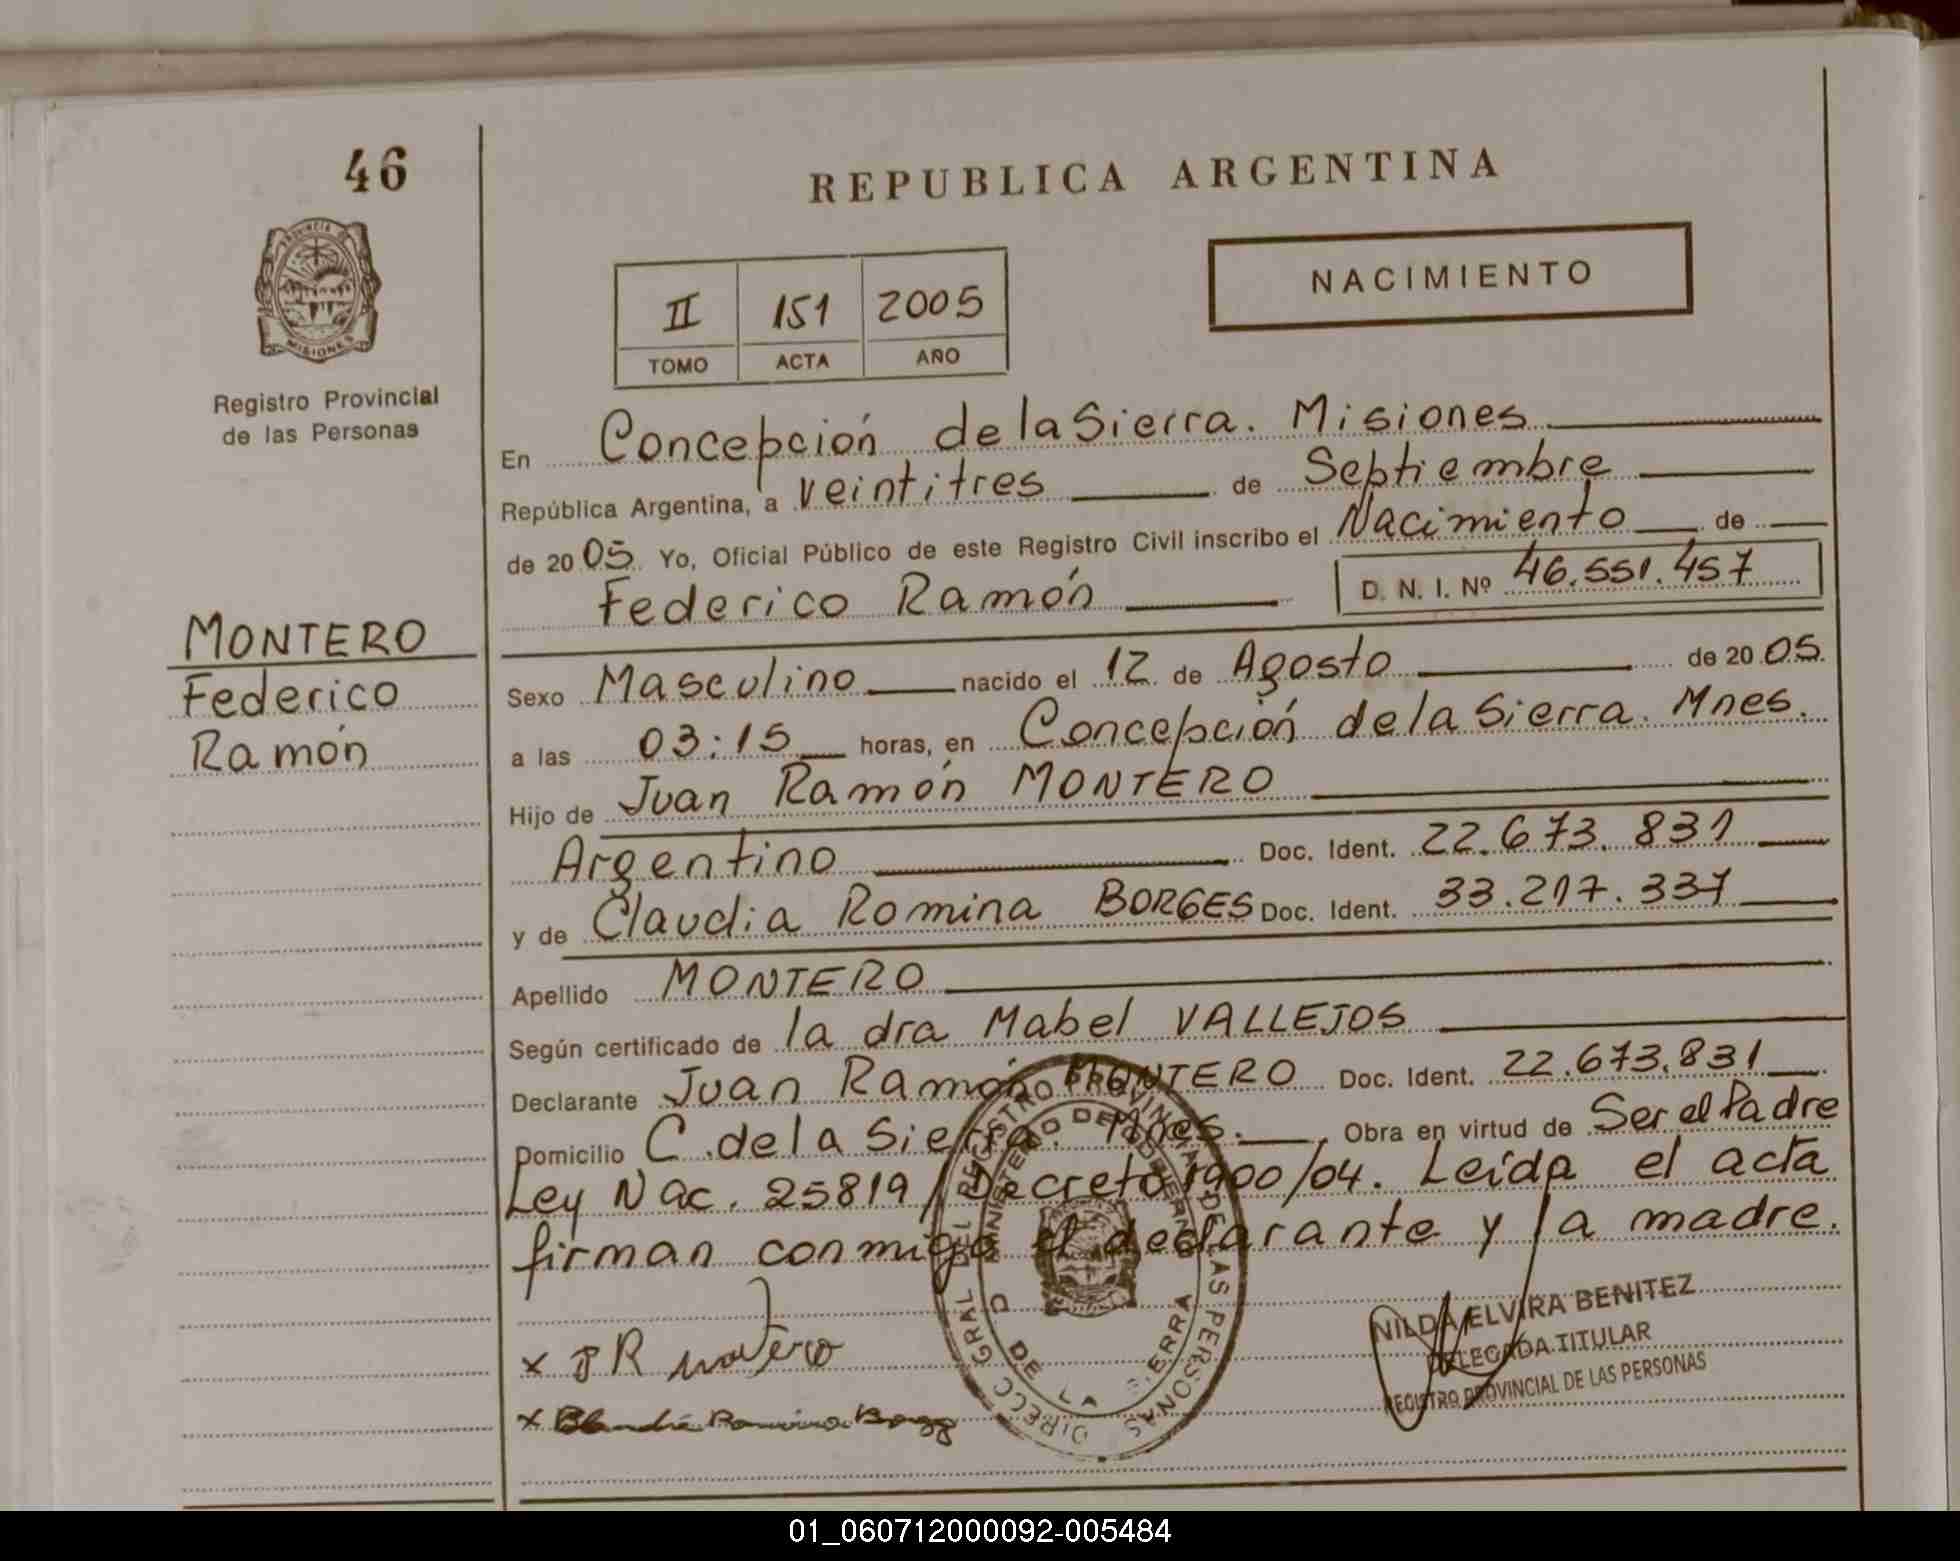 46
REPUBLICA ARGENTINA
PROVINCIA DE
MISIONES
Registro Provincial
de las Personas
II 151 2005
TOMO ACTA AÑO
NACIMIENTO
En Concepción de la Sierra. Misiones
República Argentina, a veintitres de Septiembre
de 2005. Yo, Oficial Público de este Registro Civil inscribo el Nacimiento de
Federico Ramón D. N. I. Nº 46.551.457
MONTERO
Federico
Ramón
Sexo Masculino nacido el 12 de Agosto de 2005.
a las 03:15 horas, en Concepción de la Sierra. Mnes.
Hijo de Juan Ramón MONTERO
Argentino Doc. Ident. 22.673.831
y de Claudia Romina BORGES Doc. Ident. 33.217.337
Apellido MONTERO
Según certificado de la dra Mabel VALLEJOS
Declarante Juan Ramón MONTERO Doc. Ident. 22.673.831
Domicilio C. de la Sierra. Mnes. Obra en virtud de Ser el Padre
Ley Nac. 25819/Decreto 1900/04. Leída el acta
firman conmigo el declarante y la madre.
DIRECC GRAL DEL REGISTRO PROVINCIAL DE LAS PERSONAS
MINISTERIO DE GOBIERNO
C. DE LA SIERRA
NILDA ELVIRA BENITEZ
DELEGADA TITULAR
REGISTRO PROVINCIAL DE LAS PERSONAS
x JR Montero
x Romina
01_060712000092-005484